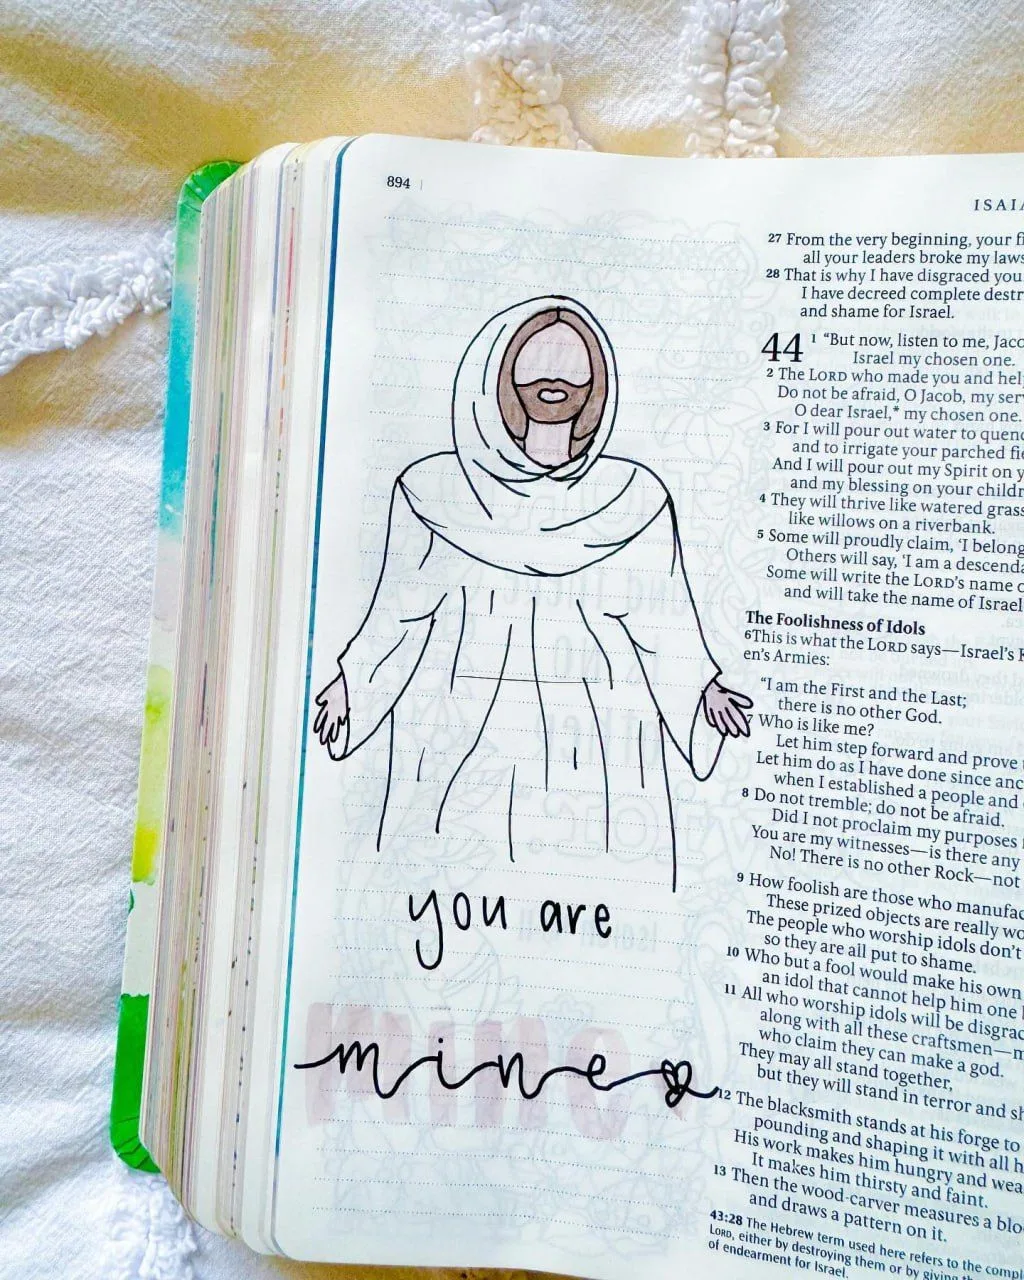 894
ISAIA
27 From the very beginning, your
all your leaders broke my laws
28 That is why I have disgraced you
I have decreed complete
and shame for Israel.
44 1 “But now, listen to me,
Israel my chosen one.
2 The LORD who made you and
Do not be afraid, O Jacob, my
O dear Israel,* my chosen one.
3 For I will pour out water to
and to irrigate your parched
And I will pour out my Spirit on
and my blessing on your
4 They will thrive like watered grass
like willows on a riverbank.
5 Some will proudly claim, ‘I belong
Others will say, ‘I am a
Some will write the LORD’s name
and will take the name of Israel
The Foolishness of Idols
6 This is what the LORD says—Israel’s
en’s Armies:
“I am the First and the Last;
there is no other God.
7 Who is like me?
Let him step forward and prove
Let him do as I have done since
when I established a people and
8 Do not tremble; do not be afraid.
Did I not proclaim my purposes
You are my witnesses—is there any
No! There is no other Rock—not
9 How foolish are those who
These prized objects are really
The people who worship idols don’t
so they are all put to shame.
10 Who but a fool would make his own
an idol that cannot help him one
11 All who worship idols will be
along with all these craftsmen—
who claim they can make a god.
They may all stand together,
but they will stand in terror and
12 The blacksmith stands at his forge to
pounding and shaping it with all
His work makes him hungry and
It makes him thirsty and faint.
13 Then the wood-carver measures a
and draws a pattern on it.
43:28 The Hebrew term used here refers to the
LORD, either by destroying them or by
of endearment for Israel.
you are
mine